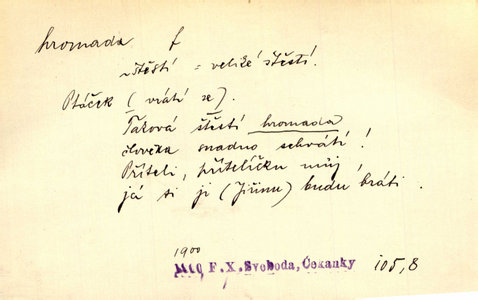 hromada f
~ štěstí = veliké štěstí.
Ptáček (vrátí se).
Taková štěstí hromada
člověka snadno schvátí!
Příteli, přítelíčku můj,
já si ji (Jiřinu) budu bráti.
1900
F. X. Svoboda, Čekanky 105,8